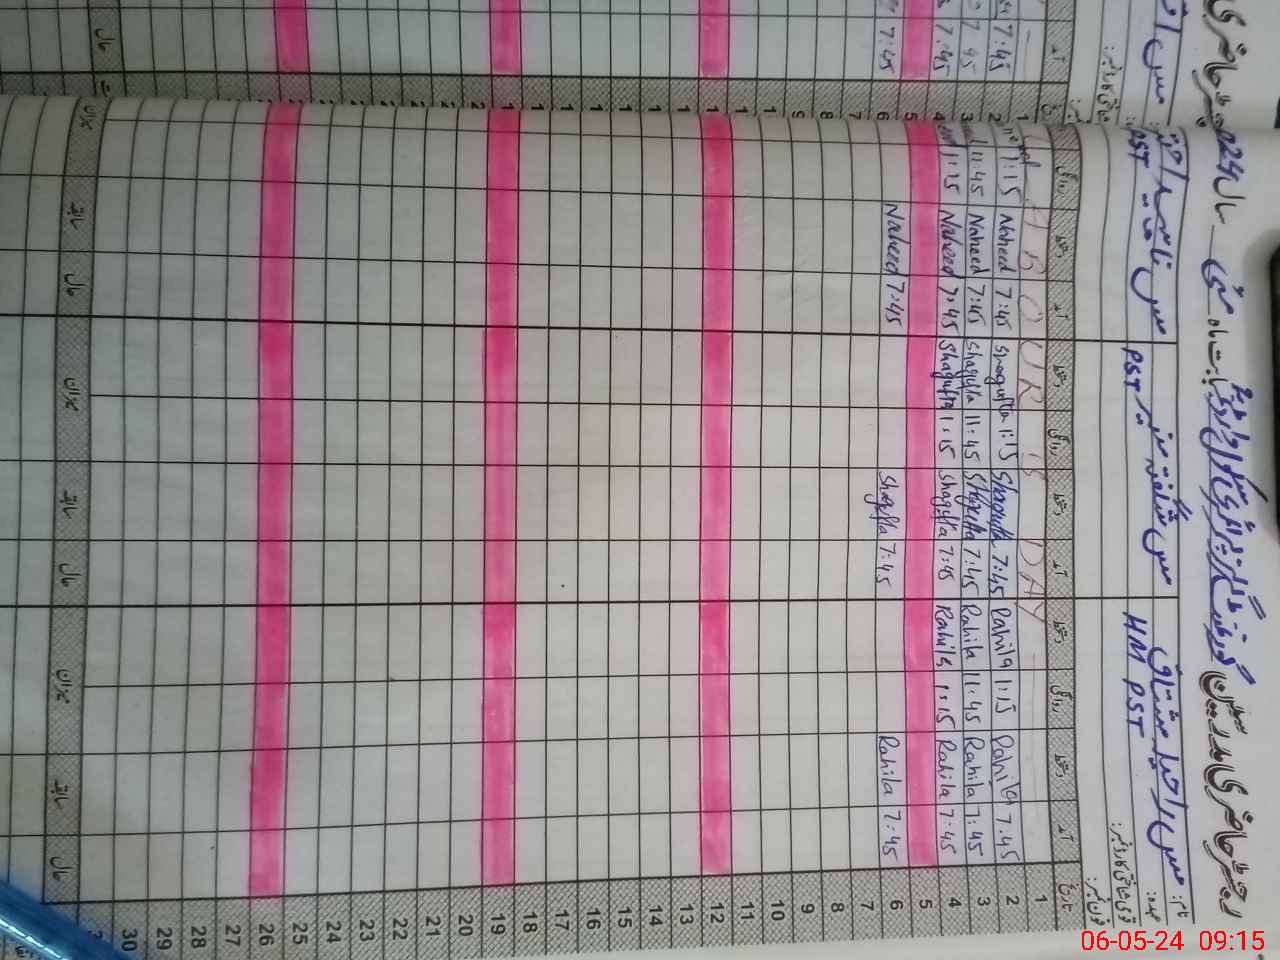 سال 2024
مس ناہید اختر
مس شگفتہ منیر
مس راحیلہ مشتاق
PST
PST
HM PST
نام:
عہدہ:
تاریخ
آمد
دستخط
روانگی
دستخط
1
LABOUR DAY
2
Rahila 7.45
Rahila 1:15
Shagufta 7:45
Shagufta 1:15
Naheed 7:45
1:15
7:45
3
Rahila 7:45
Rahila 11:45
Shagufta 7:45
Shagufta 11:45
Naheed 7:45
11:45
7:45
4
Rahila 7:45
Rahila 1:15
Shagufta 7:45
Shagufta 1:15
Naheed 7:45
1:15
7:45
5
6
Rahila 7:45
Shagufta 7:45
Naheed 7:45
7:45
7
8
9
10
11
12
13
14
15
16
17
18
19
20
21
22
23
24
25
26
27
28
29
30
حال
سابقہ
میزان
حال
سابقہ
میزان
حال
سابقہ
میزان
حال
06-05-24 09:15